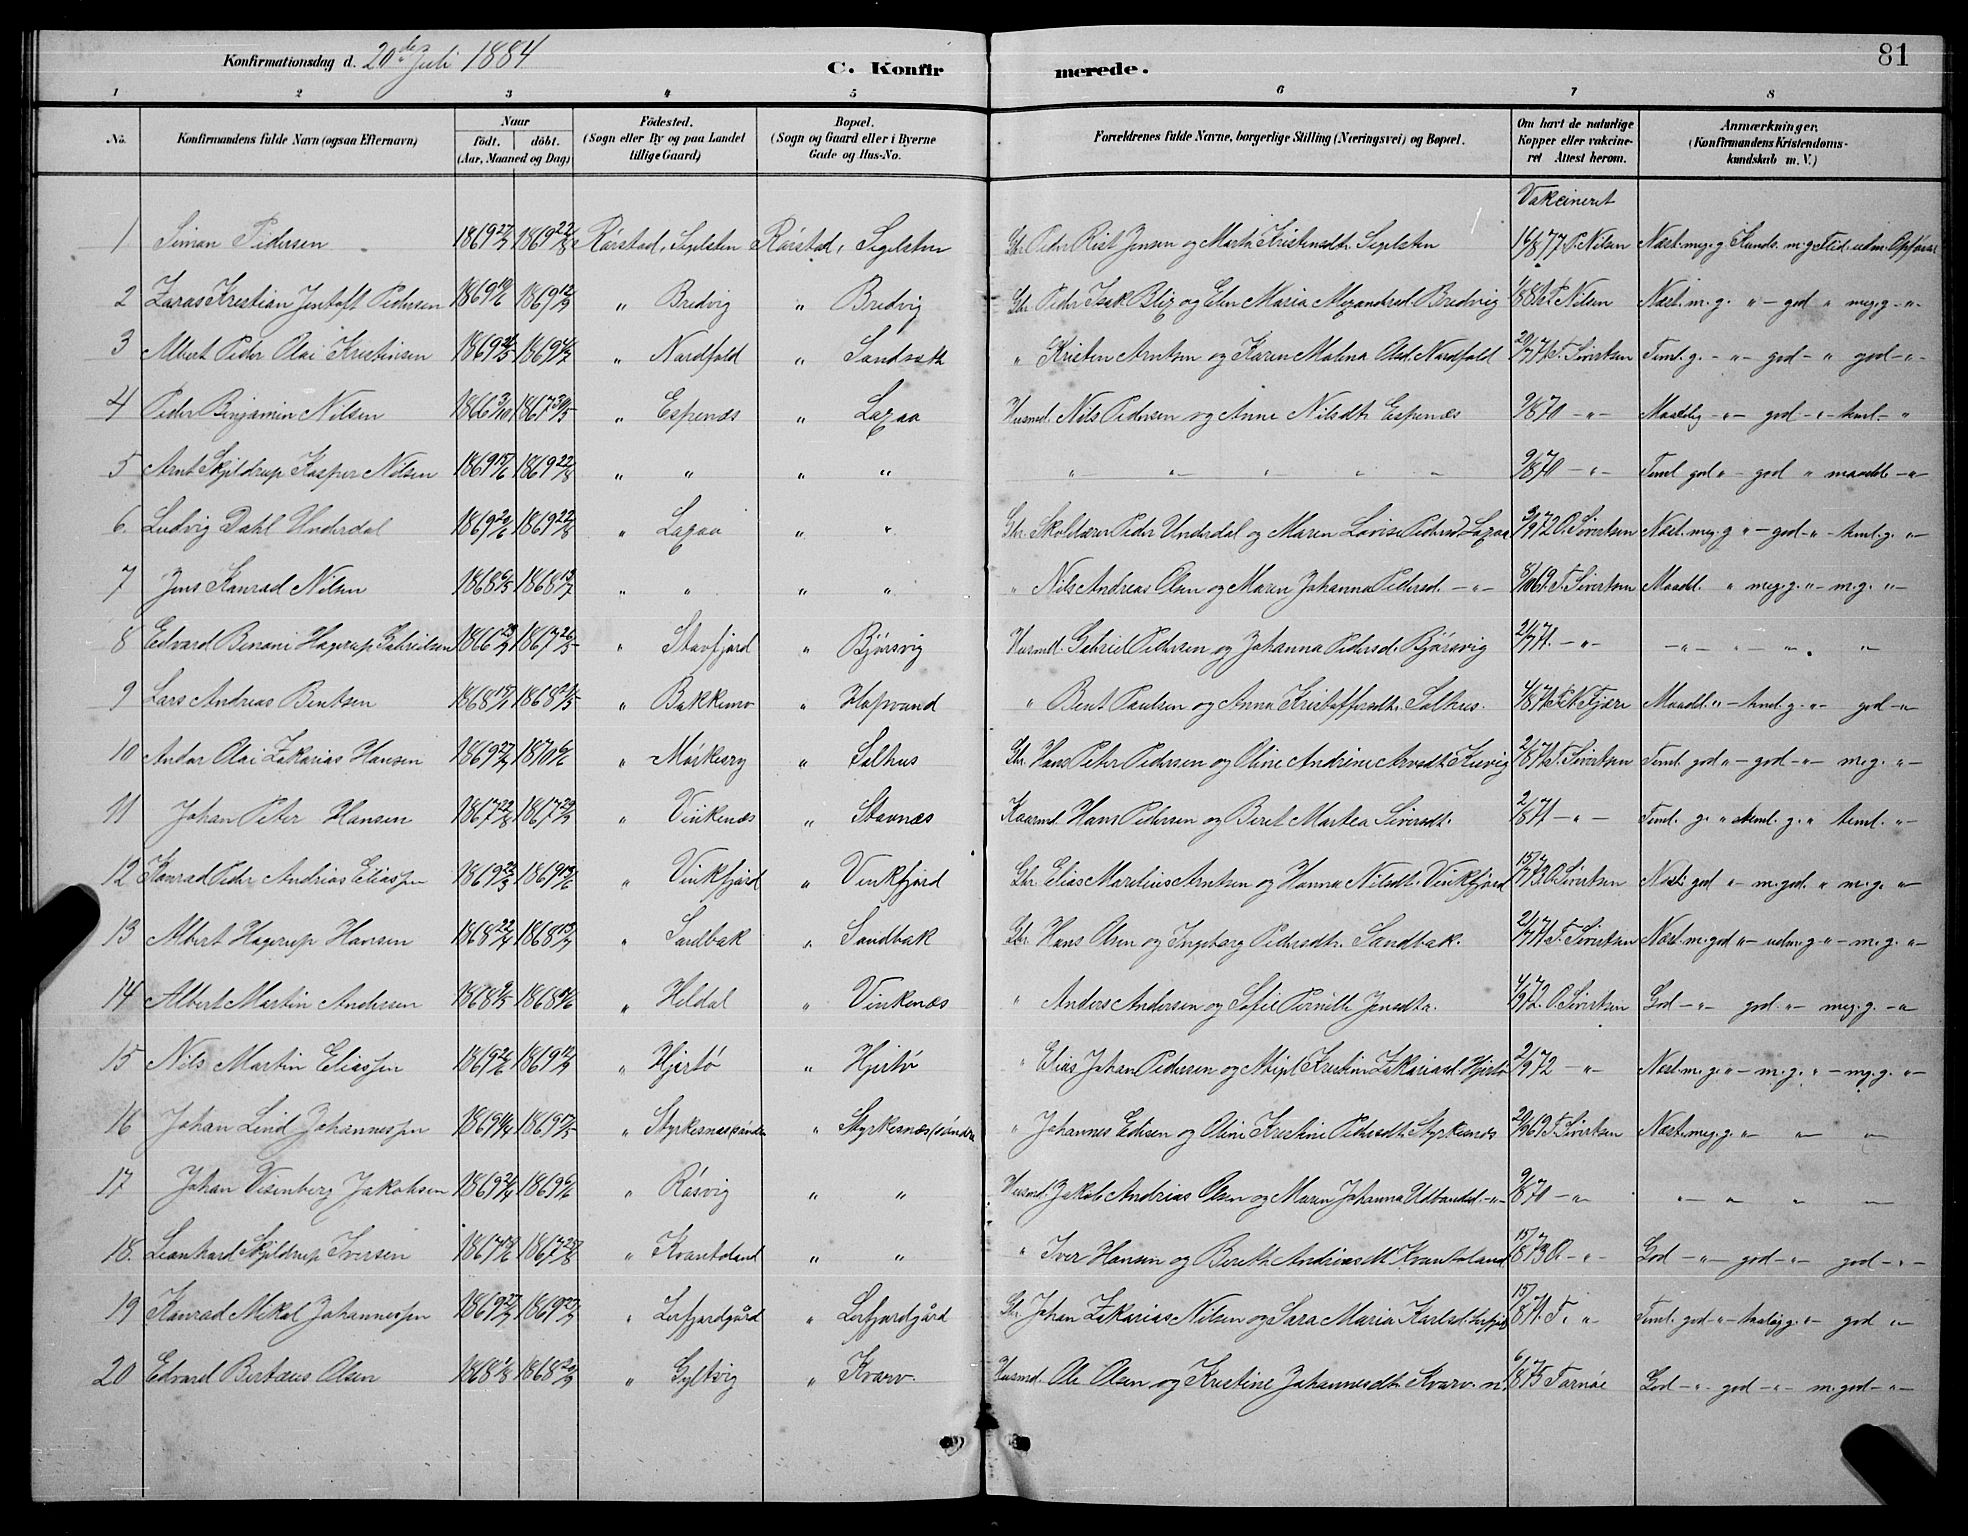 Konfirmationsdag d. 20de Juli 1884
C. Konfirmerede.
81
1 2 3 4 5 6 7 8
No.
Konfirmandens fulde Navn (ogsaa Efternavn)
Naar
födt. döbt.
(Aar, Maaned og Dag)
Födested.
(Sogn eller By og paa Landet tillige Gaard)
Bopæl.
(Sogn og Gaard eller i Byerne Gade og Hus-No.
Forældrenes fulde Navne, borgerlige Stilling (Næringsvei) og Bopæl.
Om havt de naturlige Kopper eller vakcineret Attest herom.
Anmærkninger.
(Konfirmandens Kristendomskundskab m. V.)
Vakcineret
1 Simon Pedersen 1869 1869 22/8 Rörstad, Segelsten Rörstad, Segelsten Gbr. Peder Rist Jensen og Martha Kristensdt. Segelsten 16/8 77 P. Nilsen
2 Kristian Jentoft Pedersen 1869 1869 12/9 " Bredvig " Bredvig Gbr. Peder Isak Blix og Elen Maria Bredvig P. Nilsen Næst. m. g. " - god " meg. g. -"-
3 Albert Peder Olai Kristensen 1869 1869 " Nordfold " " Kristen Arntsen og Karen Malena Olsd. Nordfold 20/7 71 T. Sivertsen Teml. g. -"- god -"- god -"-
4 Peder Benjamin Nilsen 1866 3/10 1867 30/5 " Espenæs " Laxaa Husmd. Nils Pedersen og Anne Nilsdtr. Espenæs 9/8 70 -"- Maadelig -"- god -"- teml. -"
5 Arnt Skjeldrup Kasper Nilsen 1869 15/6 1869 22/8 " " " " " " " " " 9/8 70 -"- Teml god "- god " maadel -"-
6. Ludvig Dahl Underdal 1869 20/6 1869 22/8 " Laxaa " " Gbr. Skolelærer Peder Underdal og Maren Lovise Pedersd Laxaa 3/9 72 O. Sivertsen Næst. meg. g "- god -"- teml. g. "-
7 Jens Konrad Nilsen 1868 6/5 1868 13/7 " " " " " Nils Andreas Olsen og Maren Johanna Pedersd. -"- 8/10 69 T. Sivertsen Maadel. " meg. g. "- m. g. "-
8 Edvard Benoni Hagerup Gabrielsen 1866 1867 26/5 " Stavfjord " Bjørsvig Husmd. Gabriel Pedersen og Johanna Pedersd. Bjørsvig 21/7 71. -"- -"- "- " "
9 Lars Andreas Bentsen 1868 1868 21/5 " Bakkemo " Hopvand " Bent Paulsen og Anna Kristoffersdt. Salhus. 4/8 71 Fjære Maadel "- teml. g. "- god -"-
10 Andor Olai Zakarias Hansen 1869 27/7 1870 6/6 " Mörkesry " Salhus Gbr. Hans Peter Pedersen og Oline Andrine Arntsdt. 2/8 71 T. Sivertsen Teml god "- god -"- m. g. "-
11 Johan Peter Hansen 1867 22/8 1867 29/9 " Vinkenæs " Stavnæs Kaarmd. Hans Pedersen og Beret Martea Siversdt. 2/8 71 -"- Teml. g. " teml. g. " teml. "-
12 Konrad Peder Andreas Eliassen 1869 23/3 1869 13/6 " Vinkfjord " Vinkfjord Gbr. Elias Martinius Arntsen og Hanna Nilsdt. Vinkfjord 15/7 73 O. Sivertsen Næst. god "- m. god. " m. g. "-
13 Albert Hagerup Hansen 1868 22/4 1868 13/7 " Sandbak " Sandbak Gbr. Hans Olsen og Ingeborg Pedersdtr. Sandbak. 21/7 71 T. Sivertsen Næst. m. god "- udm. g "- m. g. "-
14 Albert Martin Andersen 1868 9/5 1868 " Heldal " Vinkenæs " Anders Andersen og Sofie Pernille Jensdt. 4/9 72. O. Sivertsen God -"- god. "- meg. g. -"-
15 Nils Martin Eliassen 1869 1869 12/9 " Hjertø " Hjertø " Elias Johan Pedersen og Kristine Zakariasd. Hjertø 2/9 72 -"- Næst. m. g. "- m. g. "- mg. g. "-
16 Johan Lind Johannessen 1869 1869 17/5 " Styrkesnæs söndre " Styrkesnæs söndre " Johannes Edisen og Oline Kristine Pedersdt. Styrkesnæs 20/9 69 T. Sivertsen Næst. meg. g. "- " "
17 Johan Vesenberg Jakobsen 1869 21/4 1869 6/6 " Røsvig " " Husmd. Jakob Andreas Olsen og Maren Johanna -"- 9/8 70 -"- " " " "
18. Leonhard Skjeldrup Iversen 1867 1867 25/8 " Kvantoland " " " Iver Hansen og Bereth Andreasdt. Kvantoland 15/7 73 O. -"- God -"- god -"- god -"-
19 Konrad Mikal Johannessen 1869 27/7 1869 27/9 " Lerfjordgård " Lerfjordgård Gbr. Johan Zakarias Nilsen og Sara Maria Karlsd. 15/8 71 T. " Teml. god -"- g. "- god "-
20 Edvard Berteus Olsen 1868 1/8 1868 20/9 " Gyltvig " Kvarv. Husmd. Ole Olsen og Kristine Johannesdt. Kvarv. 6/8 75 Tarnöe God -"- god -"- m. god -"-